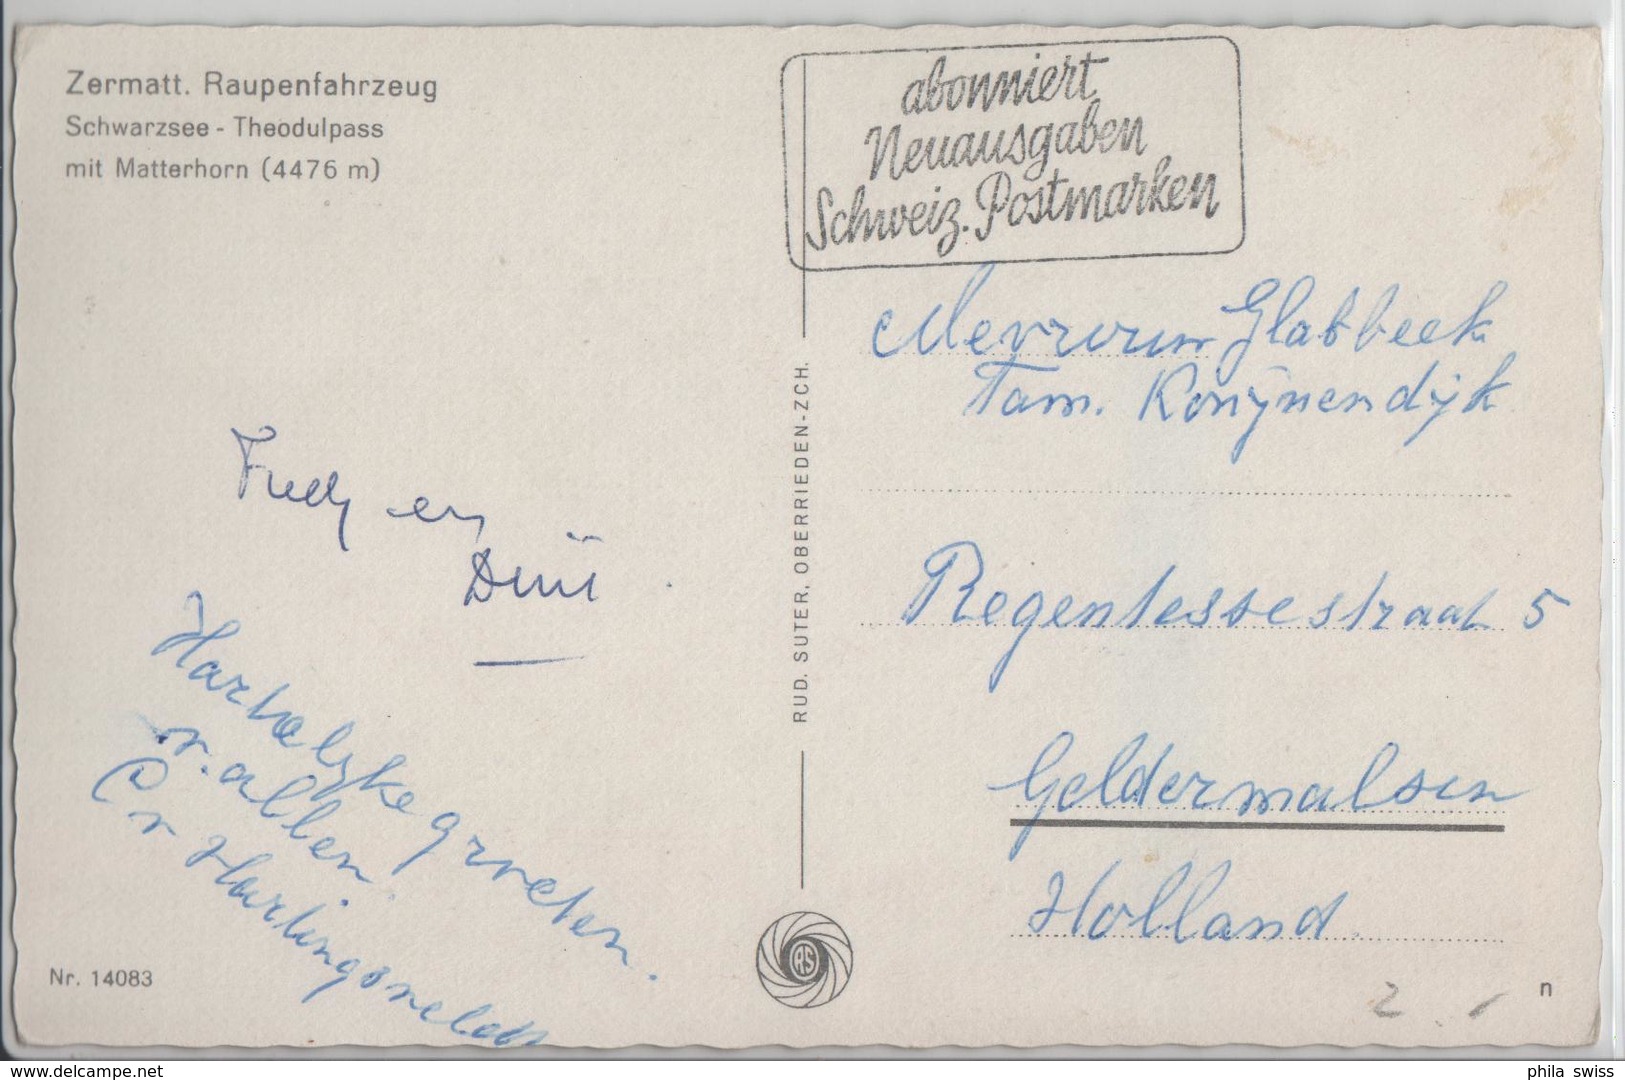 Zermatt. Raupenfahrzeug
Schwarzsee - Theodulpass
mit Matterhorn (4476 m)
abonniert
Neuausgaben
Schweiz. Postmarken
Mevrouw Glabbeek
Fam. Konijnendijk
Regentessestraat 5
Geldermalsen
Holland.
en
Hartelyke groeten.
v. allen.
RUD. SUTER, OBERRIEDEN-ZCH.
RS
Nr. 14083
n
2
phila swiss
www.delcampe.net